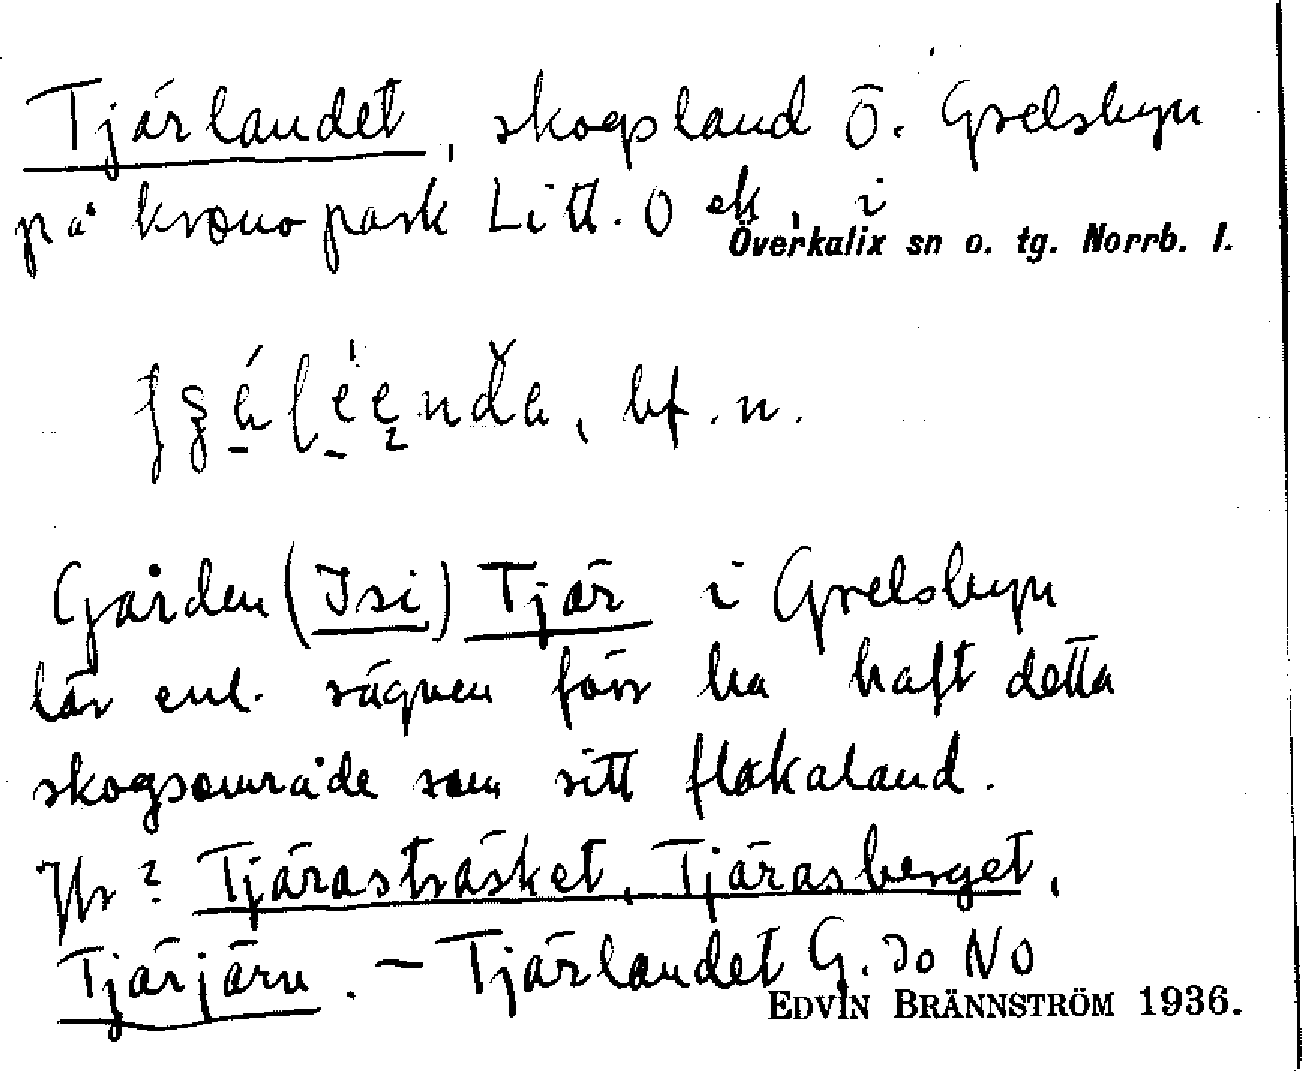 Tjärlandet, skogsland Ö. Grelsbyn
på kronopark Litt. O ek, i
Överkalix sn o. tg. Norrb. l.
bf. n.
Gården (Isi) Tjär i Grelsbyn
lär enl. sägnen förr ha haft detta
skogsområde som sitt flakaland.
Jfr ? Tjärasträsket, Tjärasberget,
Tjärjärn. – Tjärlandet G. 30 NO
EDVIN BRÄNNSTRÖM 1936.